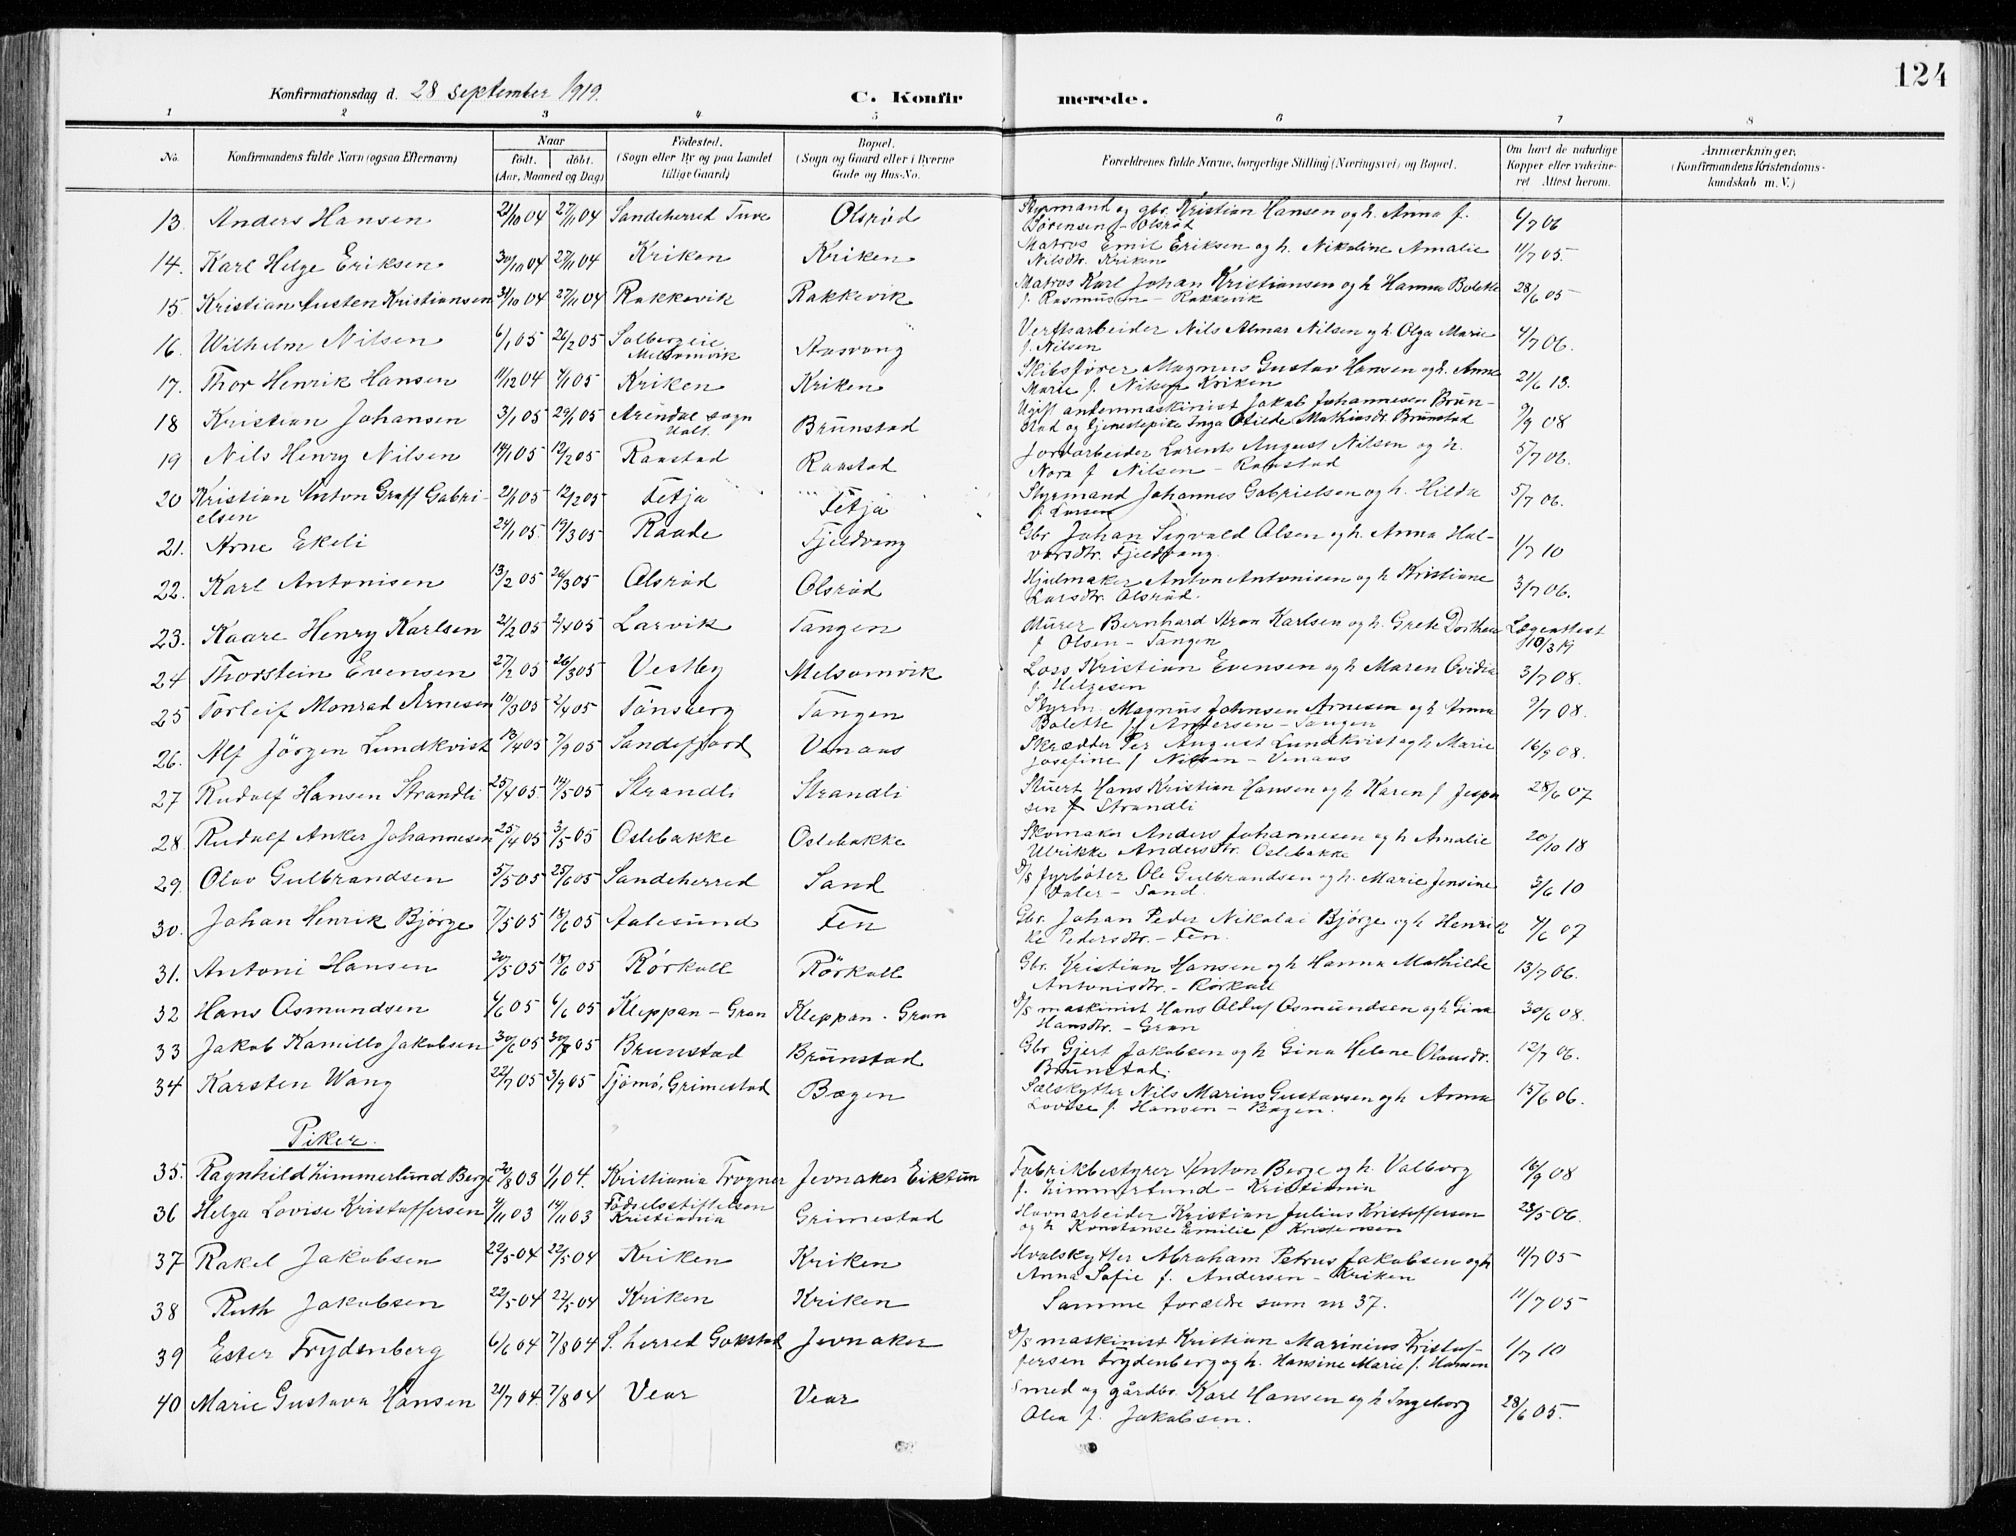 124
Konfirmationsdag d. 28 september 1919.
C. Konfirmerede.
1 2 3 4 5 6 7 8
No. Konfirmandens fulde Navn (ogsaa Efternavn) Naar født. døbt. (Aar, Maaned og Dag) Fødested. (Sogn eller By og paa Landet tillige Gaard) Bopæl. (Sogn og Gaard eller i Byerne Gade og Hus-No. Forældrenes fulde Navne, borgerlige Stilling (Næringsvei) og Bopæl. Om havt de naturlige Kopper eller vaccineret Attest herom. Anmærkninger. (Konfirmandens Kristendomskundskab m. V.)
13. Anders Hansen 21/10 04 27/11 04 Sandeherred Tuve Olsrød Styrmand og gbr. Kristian Hansen og h. Anna f. 6/7 06
Sørensen - Olsrød
14. Karl Helge Eriksen 30/10 04 27/11 04 Kriken Kriken Matros Emil Eriksen og h. Nikoline Amalie 11/7 05.
Nilsdtr. Kriken
15. Kristian Austen Kristiansen 31/10 04 27/11 04 Rakkevik Rakkevik Matros Karl Johan Kristiansen og h Hanna Bolette 28/6 05
f. Rasmussen - Rakkevik
16. Wilhelm Nilsen 6/1 05 26/2 05 Solbergeie Aasvang Verftsarbeider Nils Almar Nilsen og h. Olga Marie 4/7 06.
Melsomvik f. Nilsen
17. Thor Henrik Hansen 11/12 04 7/1 05 Kriken Kriken Skibsfører Magnus Gustav Hansen og h. Anne 21/6 13.
Marie f. Kriken
18 Kristian Johansen 3/1 05 29/1 05 Arendal sogn Brunstad Ugift andenmaskinist Jakob Johannesen Brun- 9/9 08
stad og tjenestepike Inga Otilde Mathiasdt. Brunstad
19 Nils Henry Nilsen 14/1 05 12/2 05 Raastad Raastad Jordarbeider Lorents August Nilsen og h. 5/7 06.
Nora f Nilsen - Raastad
20 Kristian Anton Graff Gabri- 2/1 05 12/2 05 Fetja Fetja Styrmand Johannes Gabrielsen og h. Hilda 5/7 06.
elsen f. Larsen
21. Arne Ekeli 24/1 05. 19/3 05 Raade Fjeldvang Gbr Johan Sigvald Olsen og h. Anna Hal- 1/7 10
vorsdtr. Fjeldvang.
22. Karl Antonisen 13/2 05 26/3 05 Olsrød Olsrød Hjulmaker Anton Antonisen og h Kristiane 3/7 06.
Larsdtr. Olsrød.
23. Kaare Henry Karlsen 21/2 05 2/4 05 Larvik Tangen Murer Bernhard Aron Karlsen og h. Grete Dorthea Lægeattest
f Olsen - Tangen 10/3 19
24 Thorstein Evensen 27/2 05 26/3 05 Vestby Melsomvik Loss Kristian Evensen og h Maren Ovidia 3/7 08.
f. Helgesen
25 Torleif Monrad Arnesen 10/3 05 2/4 05 Tönsberg Tangen Styrm. Magnus Johnsen Arnesen og h Anna 9/7 08.
Bolette f Andersen - Tangen
26. Alf Jörgen Lundkvist 13/4 05 7/9 05 Sandefjord Vinaas Skrædder Per August Lundkvist og h Marie 16/9 08.
Josefine f Nilsen - Vinaas
27 Rudolf Hansen Strandli 25/4 05 14/5 05 Strandli Strandli Stuert Hans Kristian Hansen og h Karen f Jesper 28/6 07
sen Strandli
28. Rudolf Anker Johannesen 25/4 05 3/5 05 Oslebakke Oslebakke Skomaker Anders Johannesen og h Amalie 20/10 18
Ulrikke Andersdtr. Oslebakke
29. Olav Gulbrandsen 5/5 05 25/6 05 Sandeherred Sand D/S fyrbøter Ole Gulbrandsen og h. Marie Jensine 3/6 10
Valer - Sand.
30. Johan Henrik Bjørge 7/5 05 18/6 05 Aalesund Fen Gbr. Johan Peder Nikolai Bjørge og h Henrik 4/6 07
ke Pedersdtr. - Fen.
31. Antoni Hansen 20/5 05 18/6 05 Rørkoll Rörkoll Gbr. Kristian Hansen og h Hanna Mathilde 13/7 06.
Antonisdtr. - Rørkoll
32 Hans Osmundsen 6/6 05 6/6 05 Kleppan - Gran Kleppan - Gran D/S maskinist Hans Olaf Osmundsen og h Gina 30/6 08.
Hansdtr. - Gran
33 Jakob Kamillo Jakobsen 30/6 05 30/7 05 Brunstad Brunstad Gbr Gjert Jakobsen og h Gina Helene Olausdt. 12/7 06.
Brunstad.
34 Karsten Wang 22/7 05 3/9 05 Tjømø, Grimestad Bøgen Sælskytter Nils Marius Gustavsen og h Anna 15/6 06.
Lovise f. Hansen - Bøgen.
Piker.
35. Ragnhild Zimmerlund Berge 30/8 03 1/1 04. Kristiania Frogner Jevnaker Eiktun Fabrikbestyrer Anton Berge og h. Valborg 16/9 08
f. Zimmerlund - Kristiania
36 Helga Lovise Kristoffersen 4/11 03 14/11 03 Fødselsstiftelsen Grimestad Havnarbeider Kristian Julius Kristoffersen 23/5 06.
Kristiania og h Konstanse Emilie f Kristensen
37 Rakel Jakobsen 22/5 04 22/5 04 Kriken Kriken Hvalskytter Abraham Petrus Jakobsen og h 11/7 05
Anna Sofie f. Andersen - Kriken
38 Ruth Jakobsen 22/5 04 22/5 04 Kriken Kriken Samme forældre som nr 37. 11/7 05
39 Ester Frydenberg 6/6 04 7/8 04 S. herred Gokstad Jevnaker D/S maskinist Kristian Marinius Kristof- 1/7 10
fersen Frydenberg og h. Hansine Marie f. Hansen
40 Marie Gustava Hansen 21/7 04. 7/8 04 Vear Vear Smed og gårdbr. Karl Hansen og h Ingeborg 28/6 05.
Olea f. Jakobsen.